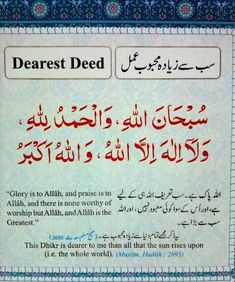 Dearest Deed
سب سے زیادہ محبوب عمل
سُبْحَانَ اللهِ، وَالْحَمْدُ لِلّٰهِ،
وَلَآ اِلٰهَ اِلَّا اللهُ، وَاللهُ اَكْبَرُ
"Glory is to Allâh, and praise is to
Allâh, and there is none worthy of
worship but Allâh, and Allâh is the
Greatest."
اللہ پاک ہے۔ سب تعریف اللہ ہی کے لیے
ہے، اور اُس کے سوا کوئی معبود نہیں، اور اللہ
سب سے بڑا ہے۔
یہ ذکر مجھے تمام دنیا سے زیادہ محبوب ہے۔ (صحیح مسلم، حدیث: 2695)
This Dhikr is dearer to me than all that the sun rises upon
(i.e. the whole world). (Muslim, Hadith : 2695)